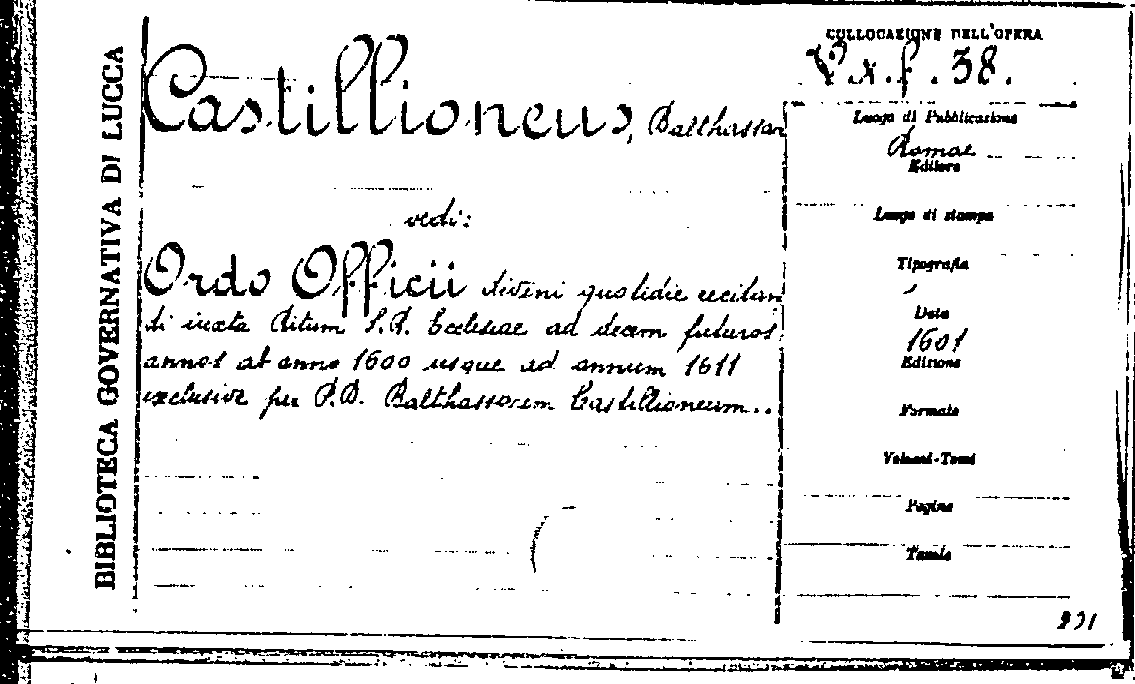 BIBLIOTECA GOVERNATIVA DI LUCCA
Castillioneus, Balthassar
vedi:
Ordo Officii divini quotidie recitan
di iuxta Ritum S.R. Ecclesiae ad decem futuros
annos ab anno 1600 usque ad annum 1611
exclusive per P.D. Balthassarem Castillioneum..
COLLOCAZIONE DELL'OPERA
V.x.f.38.
Luogo di Pubblicazione
Romae
Editore
Luogo di stampa
Tipografia
Data
1601
Edizione
Formato
Volumi-Tomi
Pagine
Tavole